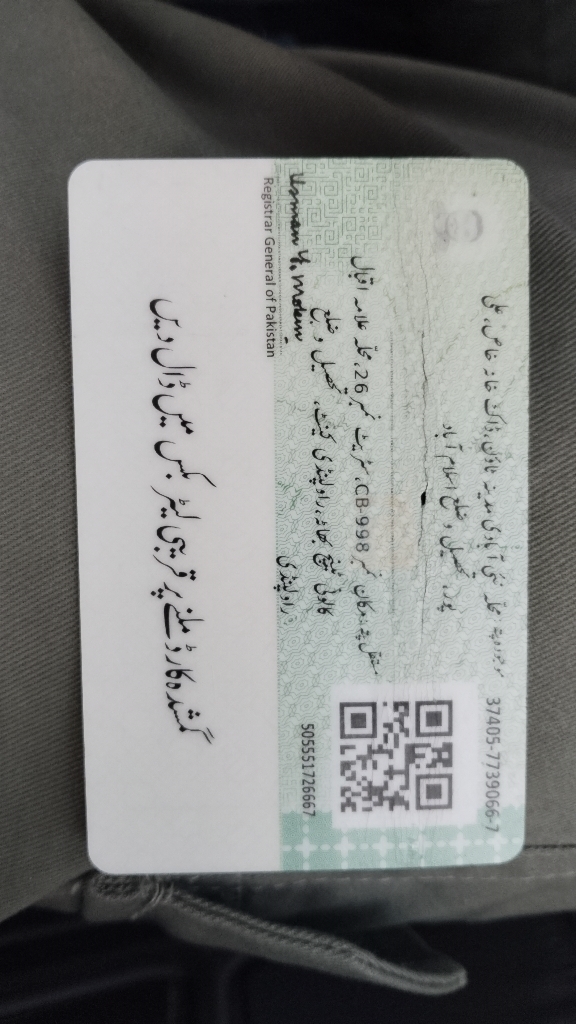 37405-7739066-7
موجودہ پتہ: محلہ نئی آبادی مدینہ ٹاؤن، ڈاکخانہ خاص، علی
پور، تحصیل و ضلع اسلام آباد
مستقل پتہ: مکان نمبر CB-998، سٹریٹ نمبر 26، محلہ علامہ اقبال
کالونی ٹینچ بھاٹہ، راولپنڈی کینٹ، تحصیل و ضلع
راولپنڈی
505551726667
Registrar General of Pakistan
گمشدہ کارڈ ملنے پر قریبی لیٹر بکس میں ڈال دیں